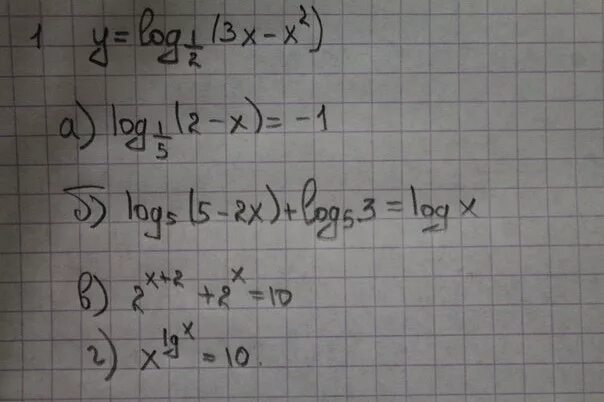 1 y = log_{1/2} (3x - x²)
а) log_{1/5} (2 - x) = -1
б) log₅ (5 - 2x) + log₅ 3 = log x
в) 2^{x+2} + 2^x = 10
г) x^{lg x} = 10.